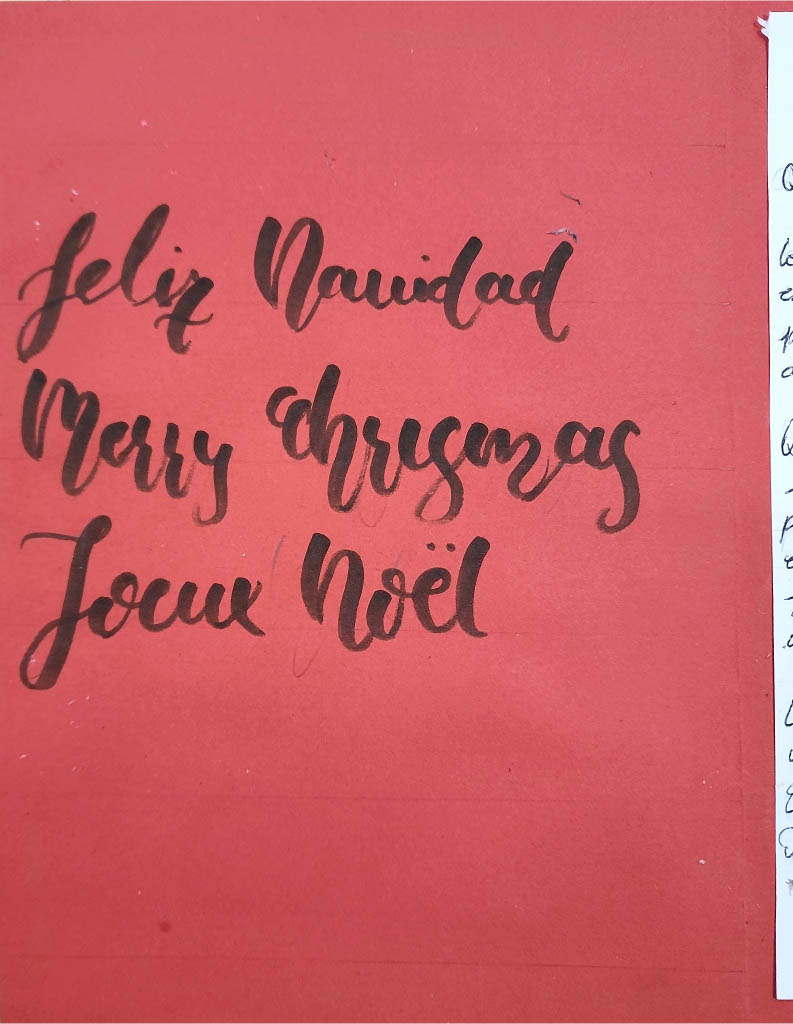 Feliz Navidad
Merry Chrismas
Joeux Noël